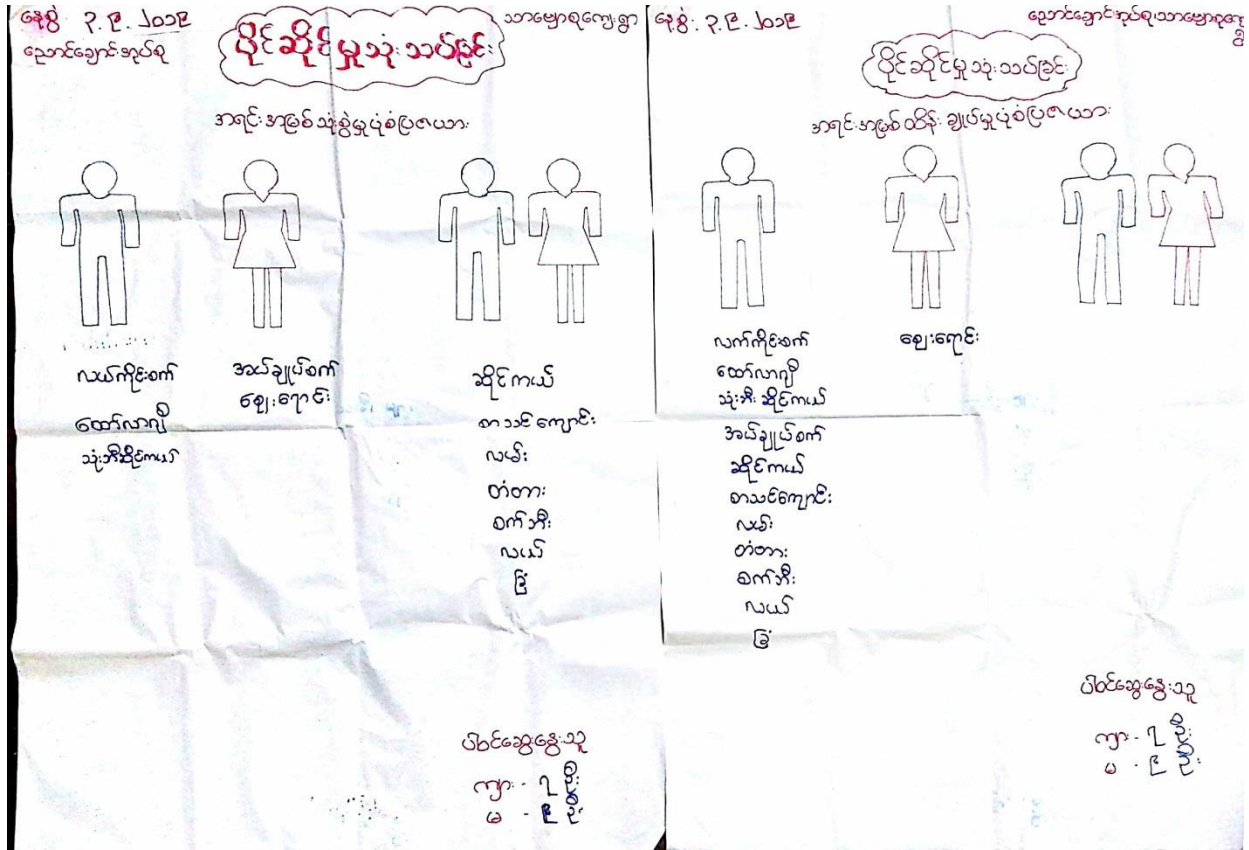 နေ့စွဲ ၃.၉.၂၀၁၉
သာဗျောစုကျေးရွာ
ညောင်ချောင်းအုပ်စု
ပိုင်ဆိုင်မှုသုံးသပ်ခြင်း
အရင်းအမြစ်သုံးစွဲမှုပုံစံပြဇယား
လယ်ကိုင်းစက်
ထော်လာဂျီ
သုံးဘီးဆိုင်ကယ်
အပ်ချုပ်စက်
ဈေးရောင်း
ဆိုင်ကယ်
စာသင်ကျောင်း
လမ်း
တံတား
စက်ဘီး
လယ်
ခြံ
ပါဝင်ဆွေးနွေးသူ
ကျား - ၇ ဦး
မ - ၉ ဦး
နေ့စွဲ . ၃.၉.၂၀၁၉
ညောင်ချောင်းအုပ်စု၊သာဗျောစုကျေးရွာ
ပိုင်ဆိုင်မှုသုံးသပ်ခြင်း
အရင်းအမြစ်ထိန်းချုပ်မှုပုံစံပြဇယား
လက်ကိုင်းစက်
ထော်လာဂျီ
သုံးဘီးဆိုင်ကယ်
အပ်ချုပ်စက်
ဆိုင်ကယ်
စာသင်ကျောင်း
လမ်း
တံတား
စက်ဘီး
လယ်
ခြံ
ဈေးရောင်း
ပါဝင်ဆွေးနွေးသူ
ကျား - ၇ ဦး
မ - ၉ ဦး